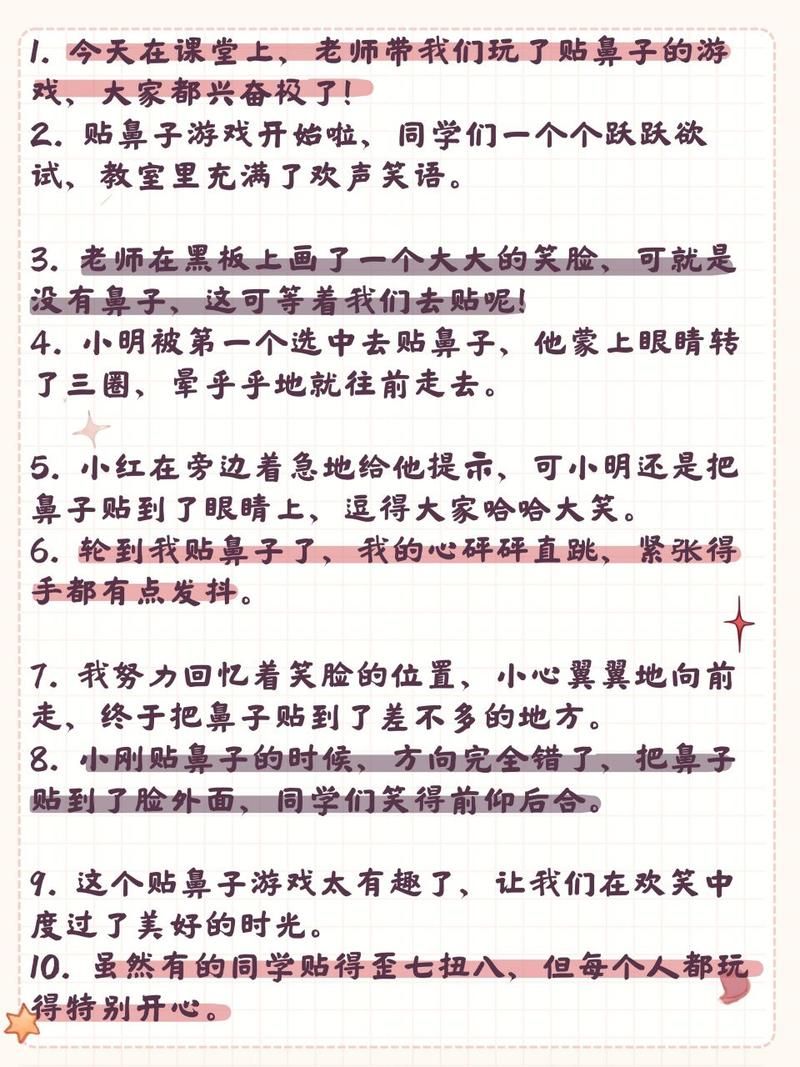 1. 今天在课堂上，老师带我们玩了贴鼻子的游
戏，大家都兴奋极了！
2. 贴鼻子游戏开始啦，同学们一个个跃跃欲
试，教室里充满了欢声笑语。
3. 老师在黑板上画了一个大大的笑脸，可就是
没有鼻子，这可等着我们去贴呢！
4. 小明被第一个选中去贴鼻子，他蒙上眼睛转
了三圈，晕乎乎地就往前走去。
5. 小红在旁边着急地给他提示，可小明还是把
鼻子贴到了眼睛上，逗得大家哈哈大笑。
6. 轮到我贴鼻子了，我的心砰砰直跳，紧张得
手都有点发抖。
7. 我努力回忆着笑脸的位置，小心翼翼地向前
走，终于把鼻子贴到了差不多的地方。
8. 小刚贴鼻子的时候，方向完全错了，把鼻子
贴到了脸外面，同学们笑得前仰后合。
9. 这个贴鼻子游戏太有趣了，让我们在欢笑中
度过了美好的时光。
10. 虽然有的同学贴得歪七扭八，但每个人都玩
得特别开心。